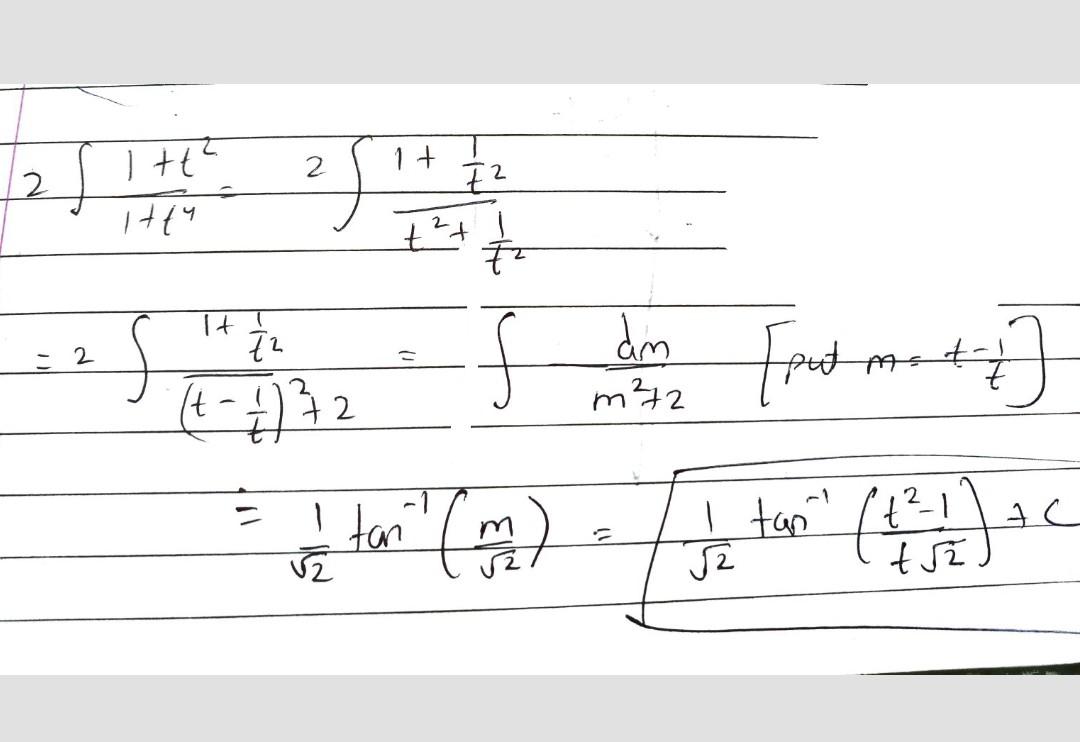 2 ∫ (1+t²)/(1+t⁴) = 2 ∫ (1 + 1/t²)/(t² + 1/t²)
= 2 ∫ (1 + 1/t²)/((t - 1/t)² + 2) = ∫ dm/(m²+2) [put m = t - 1/t]
= 1/√2 tan⁻¹ (m/√2) = 1/√2 tan⁻¹ ((t²-1)/(t√2)) + C